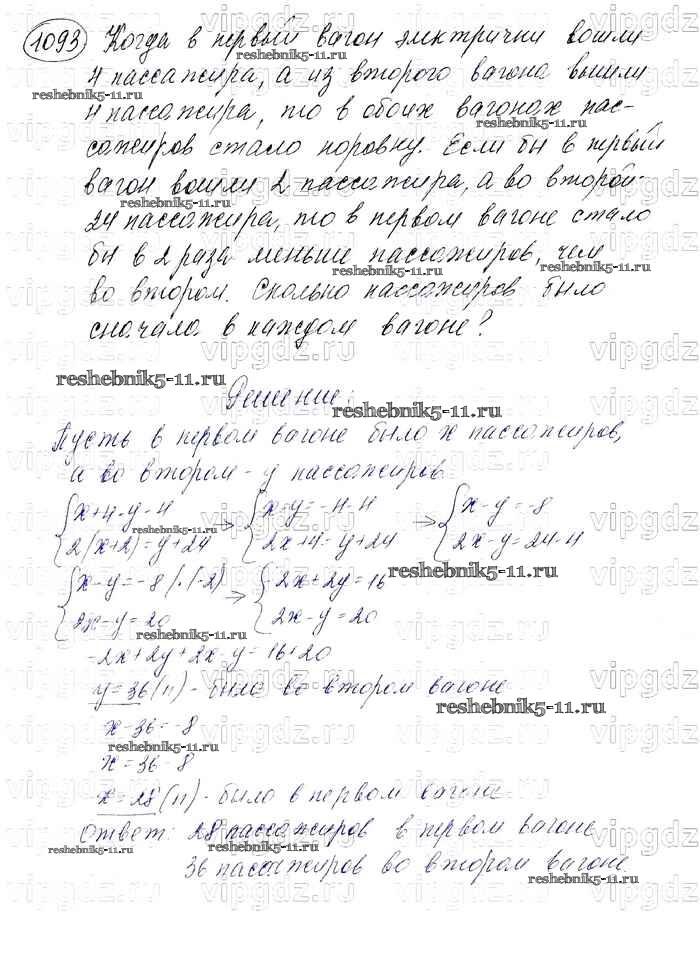 1093 Когда в первый вагон электрички вошли
4 пассажира, а из второго вагона вышли
4 пассажира, то в обоих вагонах пас-
сажиров стало поровну. Если бы в первый
вагон вошли 2 пассажира, а во второй -
24 пассажира, то в первом вагоне стало
бы в 2 раза меньше пассажиров, чем
во втором. Сколько пассажиров было
сначала в каждом вагоне?
reshebnik5-11.ru
Решение:
Пусть в первом вагоне было x пассажиров,
а во втором - y пассажиров
{x+4=y-4 → {x-y=-4-4 → {x-y=-8
{2(x+2)=y+24 {2x+4=y+24 {2x-y=24-4
{x-y=-8 |·(-2) → {-2x+2y=16
{2x-y=20 {2x-y=20
-2x+2y+2x-y=16+20
y=36(п) - было во втором вагоне
x-36=-8
x=36-8
x=28(п) - было в первом вагоне
Ответ: 28 пассажиров в первом вагоне
36 пассажиров во втором вагоне.
vipgdz.ru